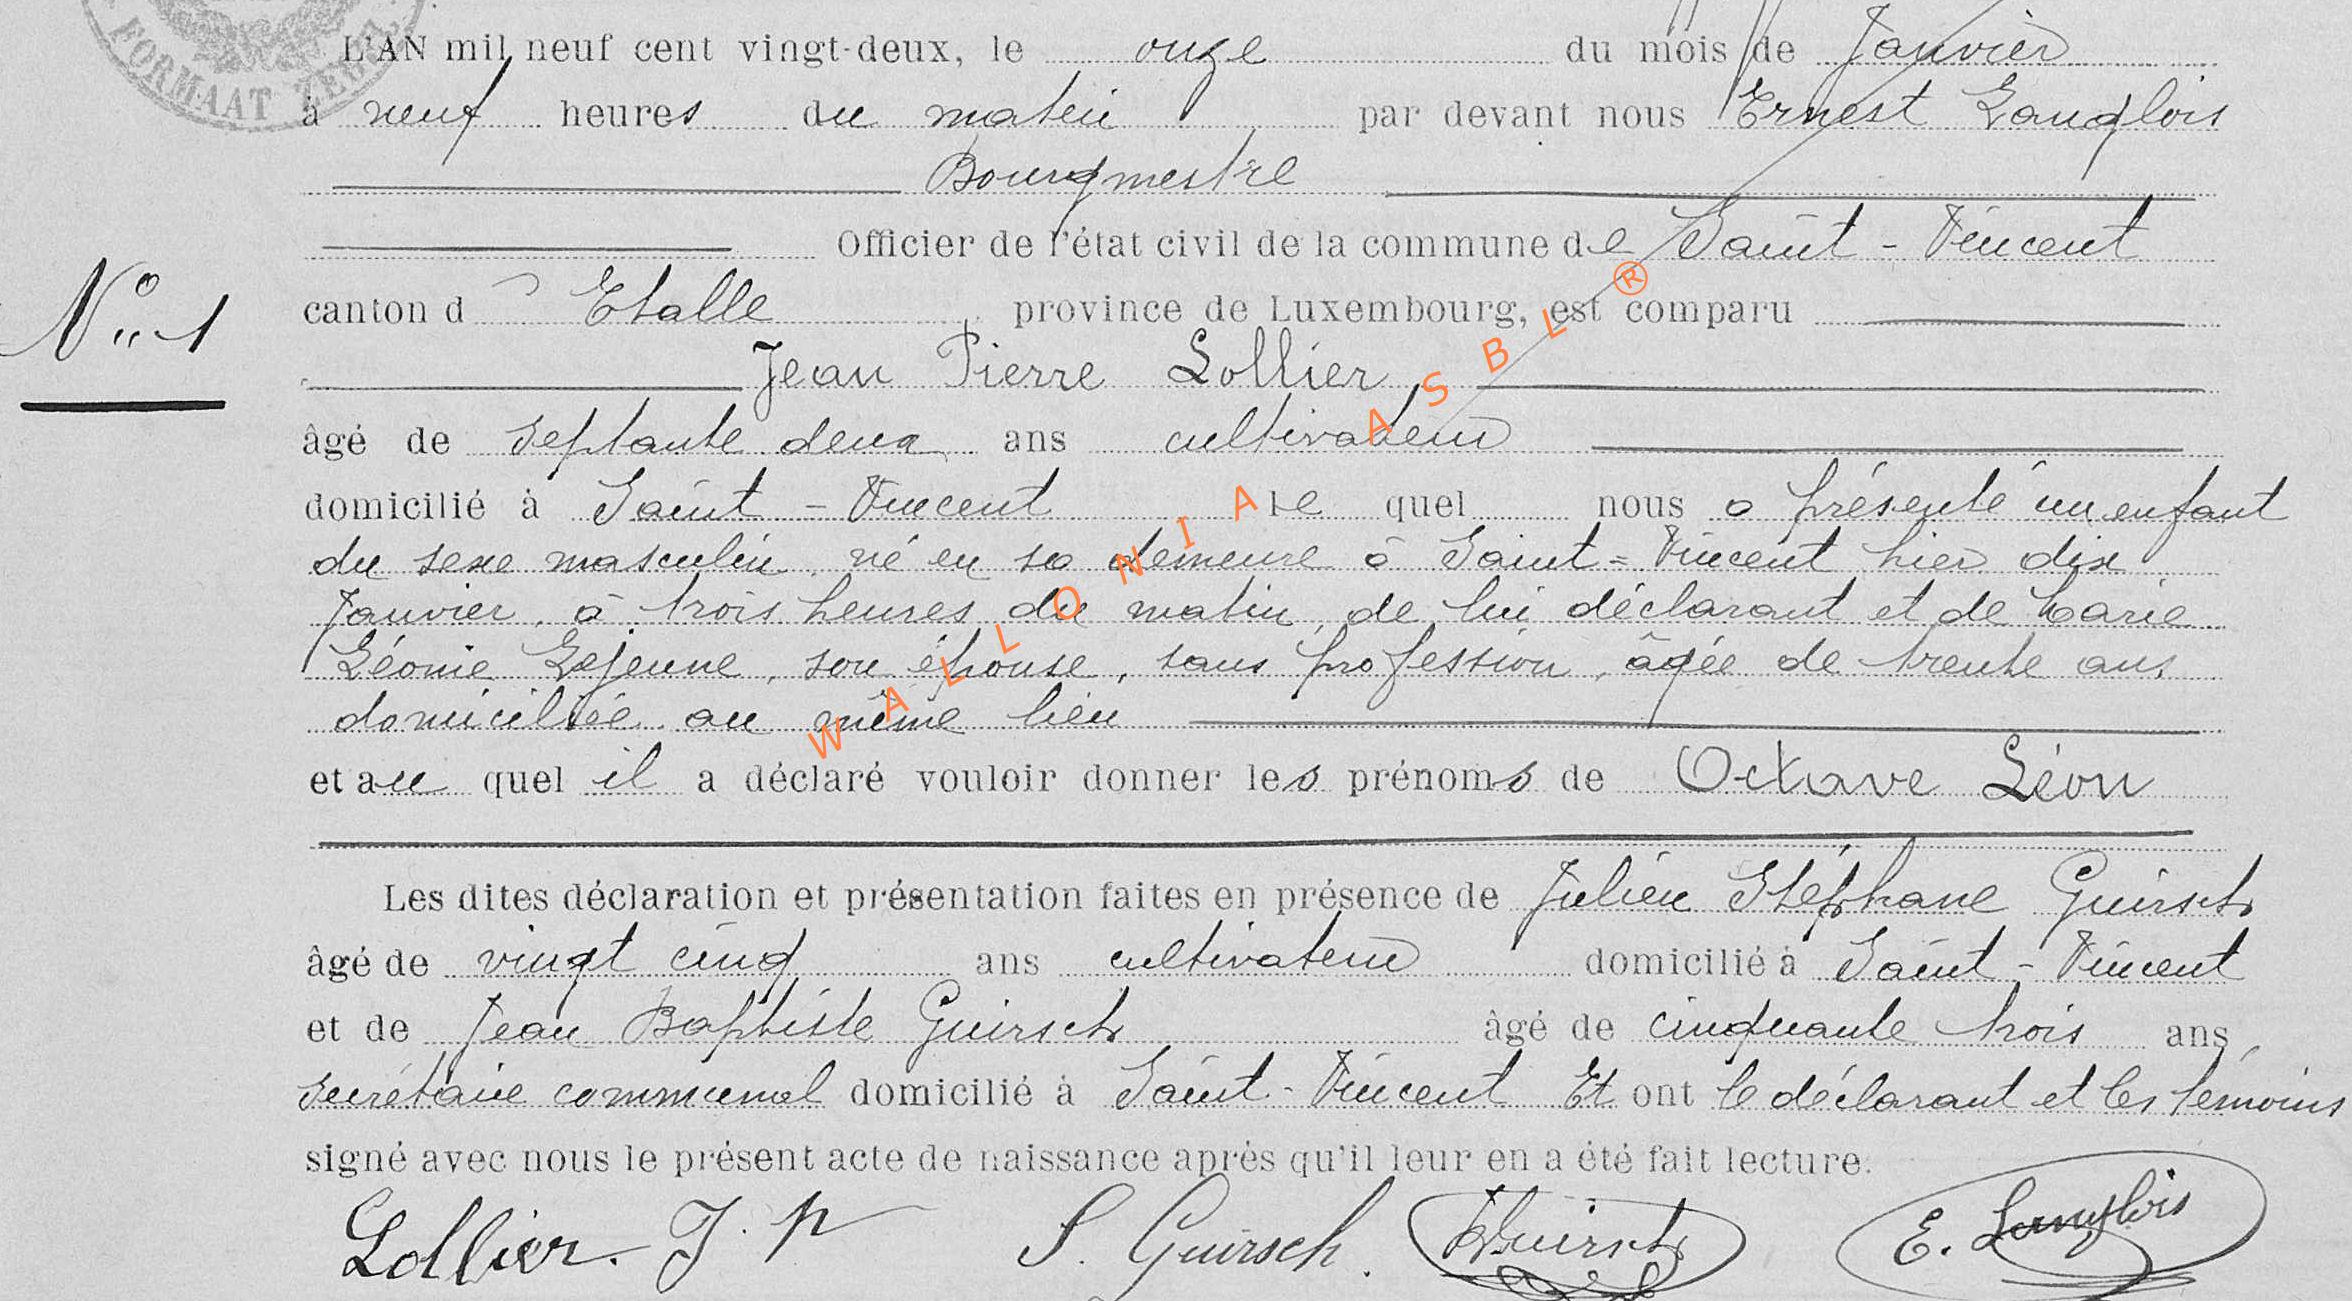 FORMAAT ZEGEL
L'AN mil neuf cent vingt-deux, le onze du mois de Janvier
à neuf heures du matin par devant nous Ernest Langlois
Bourgmestre
Officier de l'état civil de la commune de Saint-Vincent
N° 1
canton d'Etalle province de Luxembourg, est comparu
Jean Pierre Lollier,
âgé de septante deux ans cultivateur
domicilié à Saint-Vincent le quel nous a présenté un enfant
du sexe masculin né en sa demeure à Saint=Vincent hier dix
Janvier, à trois heures du matin, de lui déclarant et de Marie
Léonie Lejeune, son épouse, sans profession, âgée de trente ans,
domiciliée au même lieu
et au quel il a déclaré vouloir donner les prénoms de Octave Léon
Les dites déclaration et présentation faites en présence de Julien Stéphane Guirsch
âgé de vingt cinq ans cultivateur domicilié à Saint-Vincent
et de Jean Baptiste Guirsch âgé de cinquante trois ans,
secrétaire communal domicilié à Saint-Vincent Et ont le déclarant et les témoins
signé avec nous le présent acte de naissance après qu'il leur en a été fait lecture.
Lollier. J. P S. Guirsch. Guirsch E. Langlois
WALLONIA ASBL ®